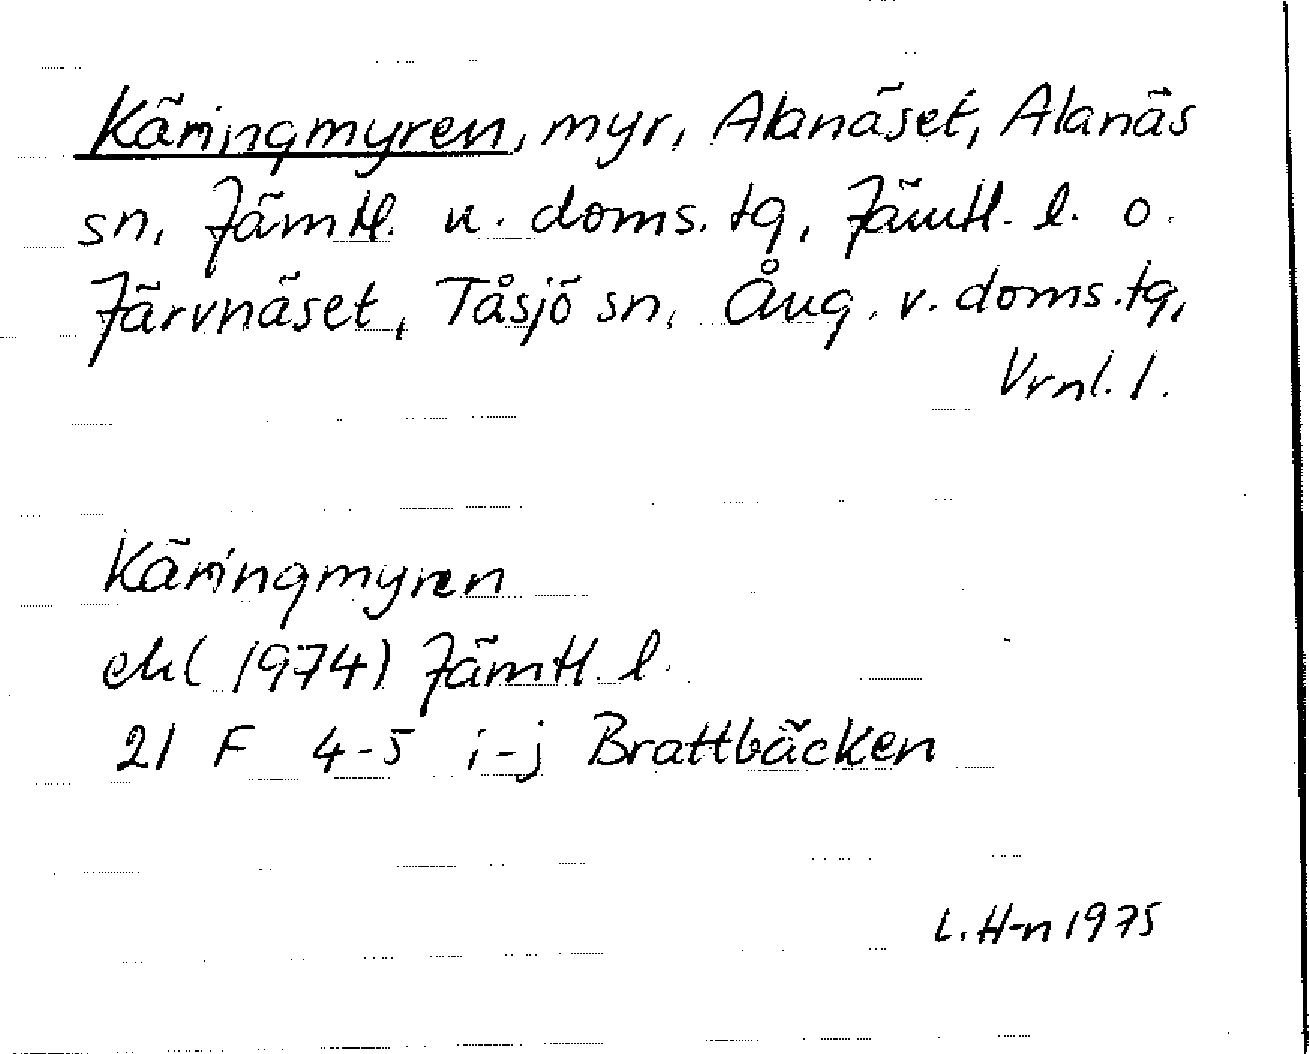 Käringmyren, myr, Alanäset, Alanäs
sn, Jämtl. n. doms. tg, Jämtl. l. o.
Järvnäset, Tåsjö sn, Ång. v. doms. tg,
Vrnl. l.
Käringmyren
ek (1974) Jämtl l.
21 F 4-5 i-j Brattbäcken
L. H-n 1975